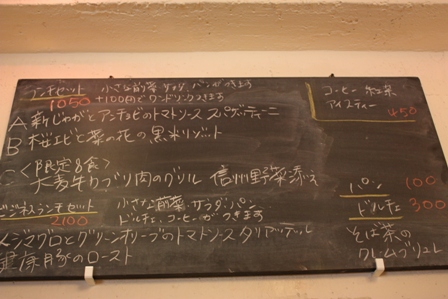 ランチセット 小さな前菜 サラダ パンがつきます
1050 +100円でワンドリンクつきます
A 新じゃがとアンチョビのトマトソース スパゲッティーニ
B 桜エビと菜の花の黒米リゾット
C <限定8食>
大麦牛カブリ肉のグリル 信州野菜添え
ビジネスランチセット 小さな前菜、サラダ、パン、
2100 ドルチェ、コーヒーがつきます
メジマグロとグリーンオリーブのトマトソース タリアッテッレ
健康豚のロースト
コーヒー 紅茶
アイスティー
450
パン 100
ドルチェ 300
そば茶の
クレームブリュレ